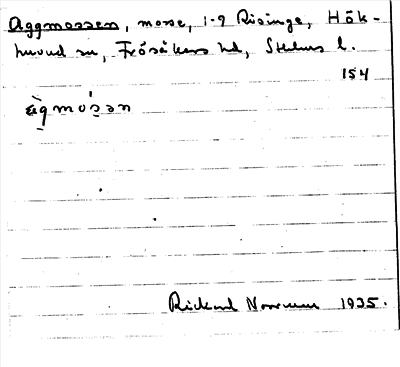 Aggmossen, mosse, 1-9 Risinge, Hök-
huvud sn, Frösåkers hd, Sthlms l.
154
ägmosən
Rickard Norrman 1935.